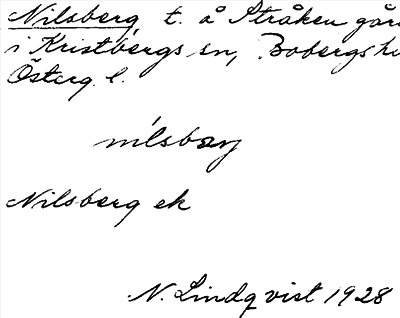 Nilsberg t. å Stråken går
i Kristbergs sn, Bobergs h
Österg. l.
nílsbærj
Nilsberg ek
N. Lindqvist 1928